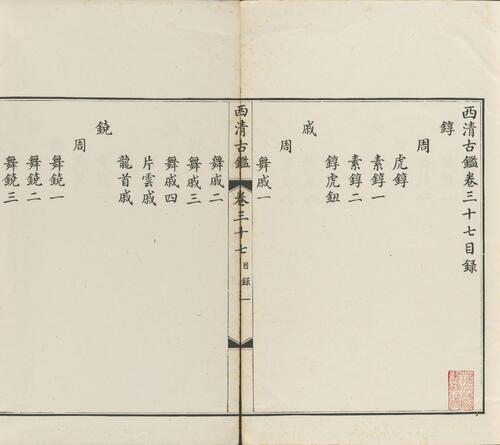 西清古鑑卷三十七目録
錞
周
虎錞
素錞一
素錞二
錞虎鈕
戚
周
舞戚一
西清古鑑 卷三十七 目録 一
舞戚二
舞戚三
舞戚四
片雲戚
龍首戚
鐃
周
舞鐃一
舞鐃二
舞鐃三